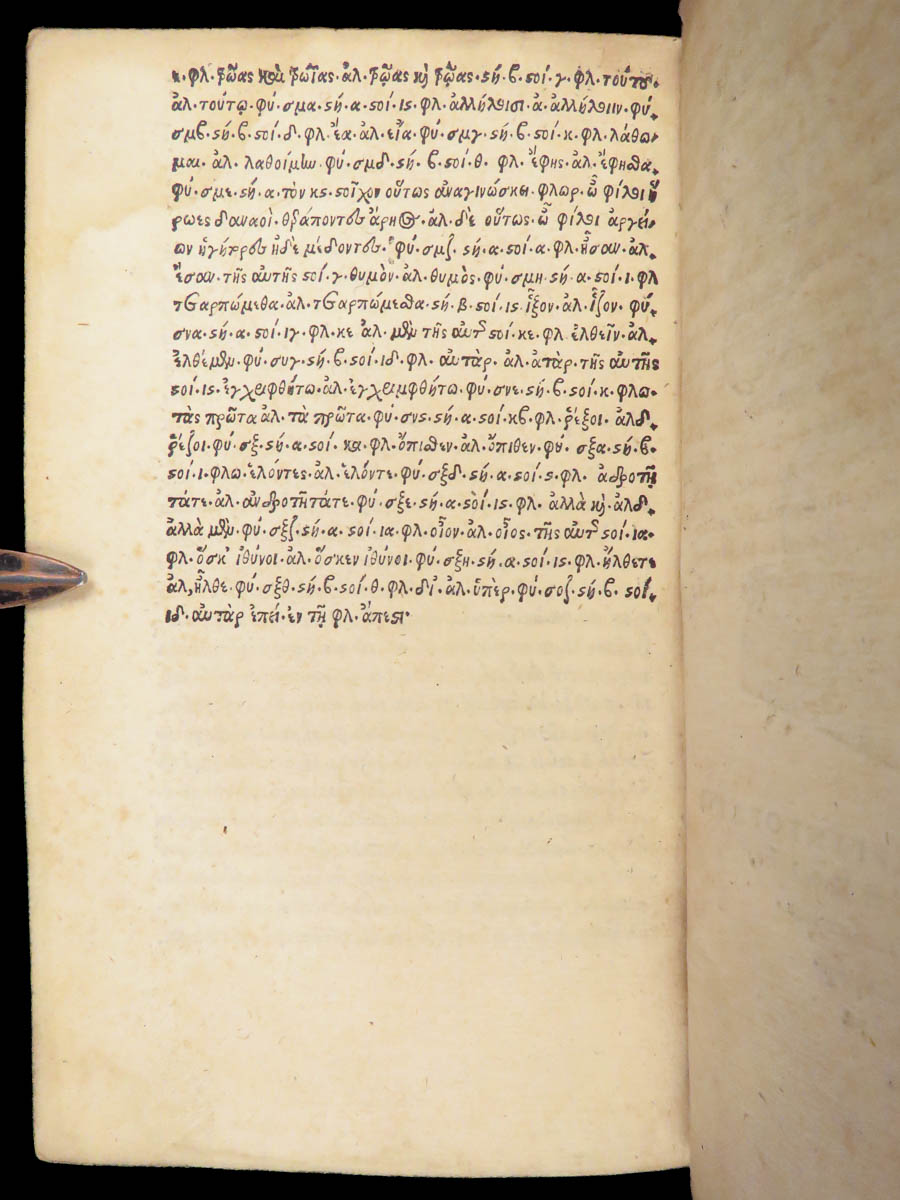 κ· φλ· τρῶας καὶ τρωϊὰς· ἀλ· τρῶας κὴ τρῷας· ϛή· β· ϛοί· γ· φλ· τούτου·
ἀλ· τούτῳ· φύ· σμα· ϛή· α· ϛοί· ις· φλ· ἀλλήλοισι· ἀ· ἀλλήλοιιν· φύ·
σμβ· ϛή· β· ϛοί· δ· φλ· ἔα· ἀλ· εἶα· φύ· σμγ· ϛή· β· ϛοί· κ· φλ· λάθω
μαι· ἀλ· λαθοίμην· φύ· σμδ· ϛή· β· ϛοί· θ· φλ· ἔφης· ἀλ· ἔφησθα·
φύ· σμε· ϛή· α· τὸν κϛ· ϛοῖχον οὕτως ἀναγινώσκει· φλωρ· ὦ φίλοι ἥ
ρωες δαναοὶ· θεράποντες ἄρηος· ἀλ· δὲ οὕτως· ὦ φίλοι ἀργεί
ων ἡγήτορες ἠδὲ μέδοντες· φύ· σμζ· ϛή· α· ϛοί· α· φλ· ἦσαν· ἀλ·
ἔσαν· τῆς αὐτῆς ϛοί· γ· θυμὸν· ἀλ· θυμὸς· φύ· σμη· ϛή· α· ϛοί· ι· φλ
ταρπώμεθα· ἀλ· ταρπώμεσθα· ϛή· β· ϛοί· ις· ἷξον· ἀλ· ἷζον· φύ·
σνα· ϛή· α· ϛοί· ιγ· φλ· κε ἀλ· μὲν τῆς αὐτ ϛοί· κε· φλ ἐλθεῖν· ἀλ·
ἐλθέμεν· φύ· συγ· ϛή· β· ϛοί· ιδ· φλ· αὐτὰρ· ἀλ· ἀτὰρ· τῆς αὐτῆς
ϛοί· ις· ἐγχριφθήτω· ἀλ· ἐγχριμφθήτω· φύ· σνε· ϛή· β· ϛοί· κ· φλω·
τὰς πρῶτα ἀλ· τὰ πρῶτα· φύ· σνς· ϛή· α· ϛοί· κβ· φλ· ῥέξοι· ἀλδ·
ῥέζοι· φύ· σξ· ϛή· α· ϛοί· κα· φλ· ὄπισθεν· ἀλ· ὄπιθεν· φύ· σξα· ϛή· β·
ϛοί· ι· φλω· ἑλόντες· ἀλ· ἑλόντε· φύ· σξδ· ϛή· α· ϛοί· ς· φλ· ἀδροτῆ
τάτε· ἀλ· ἀνδροτῆτάτε· φύ· σξε· ϛή· α· ϛοί· ις· φλ· ἀλλὰ κὴ· ἀλδ·
ἀλλὰ μὲν· φύ· σξζ· ϛή· α· ϛοί· ια· φλ· οἷον· ἀλ· οἷος· τῆς αὐτ ϛοί· ια·
φλ· ὅσκ' ἰθύνοι· ἀλ· ὅσκεν ἰθύνοι· φύ· σξη· ϛή· α· ϛοί· ις· φλ· ἤλθετε
ἀλ, ἦλθε· φύ· σξθ· ϛή· β· ϛοί· θ· φλ· δι· ἀλ· ὑπὲρ· φύ· σοζ· ϛή· β· ϛοί·
ιδ· αὐτὰρ ἐπεί· ἐν τῇ φλ· ἄπεϛι·